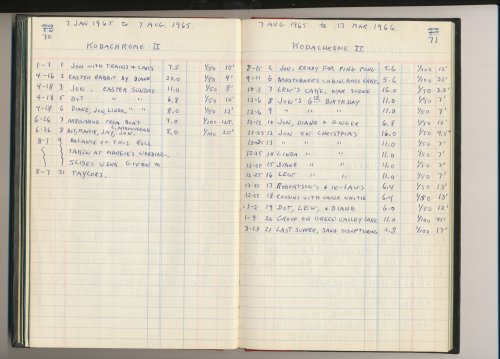 7 JAN 1965 to 7 AUG. 1965.
70
KODACHROME II
1-7 1 JON WITH TRAINS & CARS 7.5 1/50 10'
4-16 2 EASTER RABBIT BY DIANE 22.0 1/50 9'
4-18 3 JON, EASTER SUNDAY 11.0 1/50 8'
4-18 5 DOT " " 6.8 1/50 10'
4-18 6 DIANE, JON, LINDA, " " 8.0 1/50 12'
6-26 7 ARROWHEAD FROM BOAT 9.0 1/100 INF.
6-26 8 DOT, MARIE, JAY, JON, ARROWHEAD 8.0 1/100 20'
8-7 9 BALANCE OF THIS ROLL
TAKEN AT MARGIE'S WEDDING.
SLIDES WERE GIVEN TO
8-7 21 TAYLORS.
7 AUG 1965 to 13 MAR 1966.
71
KODACHROME II
8-25 2 JON, READY FOR PING PONG 5.6 1/200 12'
9-11 6 CABIN, BASS LAKE 5.6 1/200 35'
10-3 7 LEW'S CAKE, WAR SCENE 16.0 1/50 3.5'
12-6 8 JON'S 6th BIRTHDAY 11.0 1/50 7'
12-6 9 " " " 11.0 1/50 7'
10 JON, DIANE & GINGER 6.8 1/50 12'
12-25 12 JON ON CHRISTMAS 16.0 1/50 4.5'
12-25 13 " " " 11.0 1/50 7'
12-25 14 LINDA " " 11.0 1/50 7'
12-25 15 DIANE " " 11.0 1/50 7'
12-25 16 LEW " " 11.0 1/50 7'
12-25 17 ROBERTSON'S & IN-LAWS 6.4 1/50 13'
12-25 18 COUSINS WITH UNCLE WHITIE 6.4 1/50 13'
1-2 19 DOT, LEW, & DIANE 6.0 1/50 12'
1-9 20 GROUP ON GREEN VALLEY LAKE 11.0 1/100 45'
3-13 21 LAST SUPPER, SAND SCULPTURING 2.8 1/100 17'